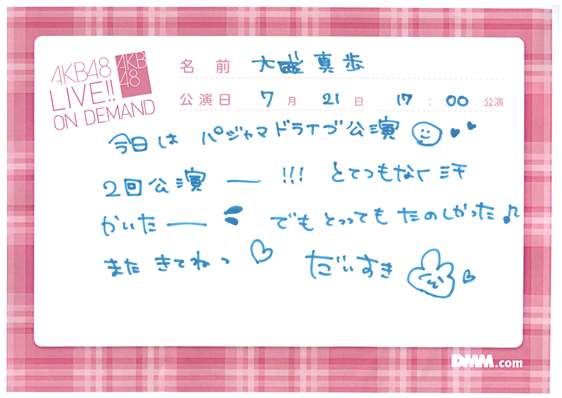 AKB48
LIVE!!
ON DEMAND
AKB
48
名 前 大盛真歩
公演日 7月 21日 17:00 公演
今日は パジャマドライブ公演
2回公演 ー !!! とてつもなく 汗
かいた ー でも とってもたのしかった♪
また きてねっ だいすき
DMM.com